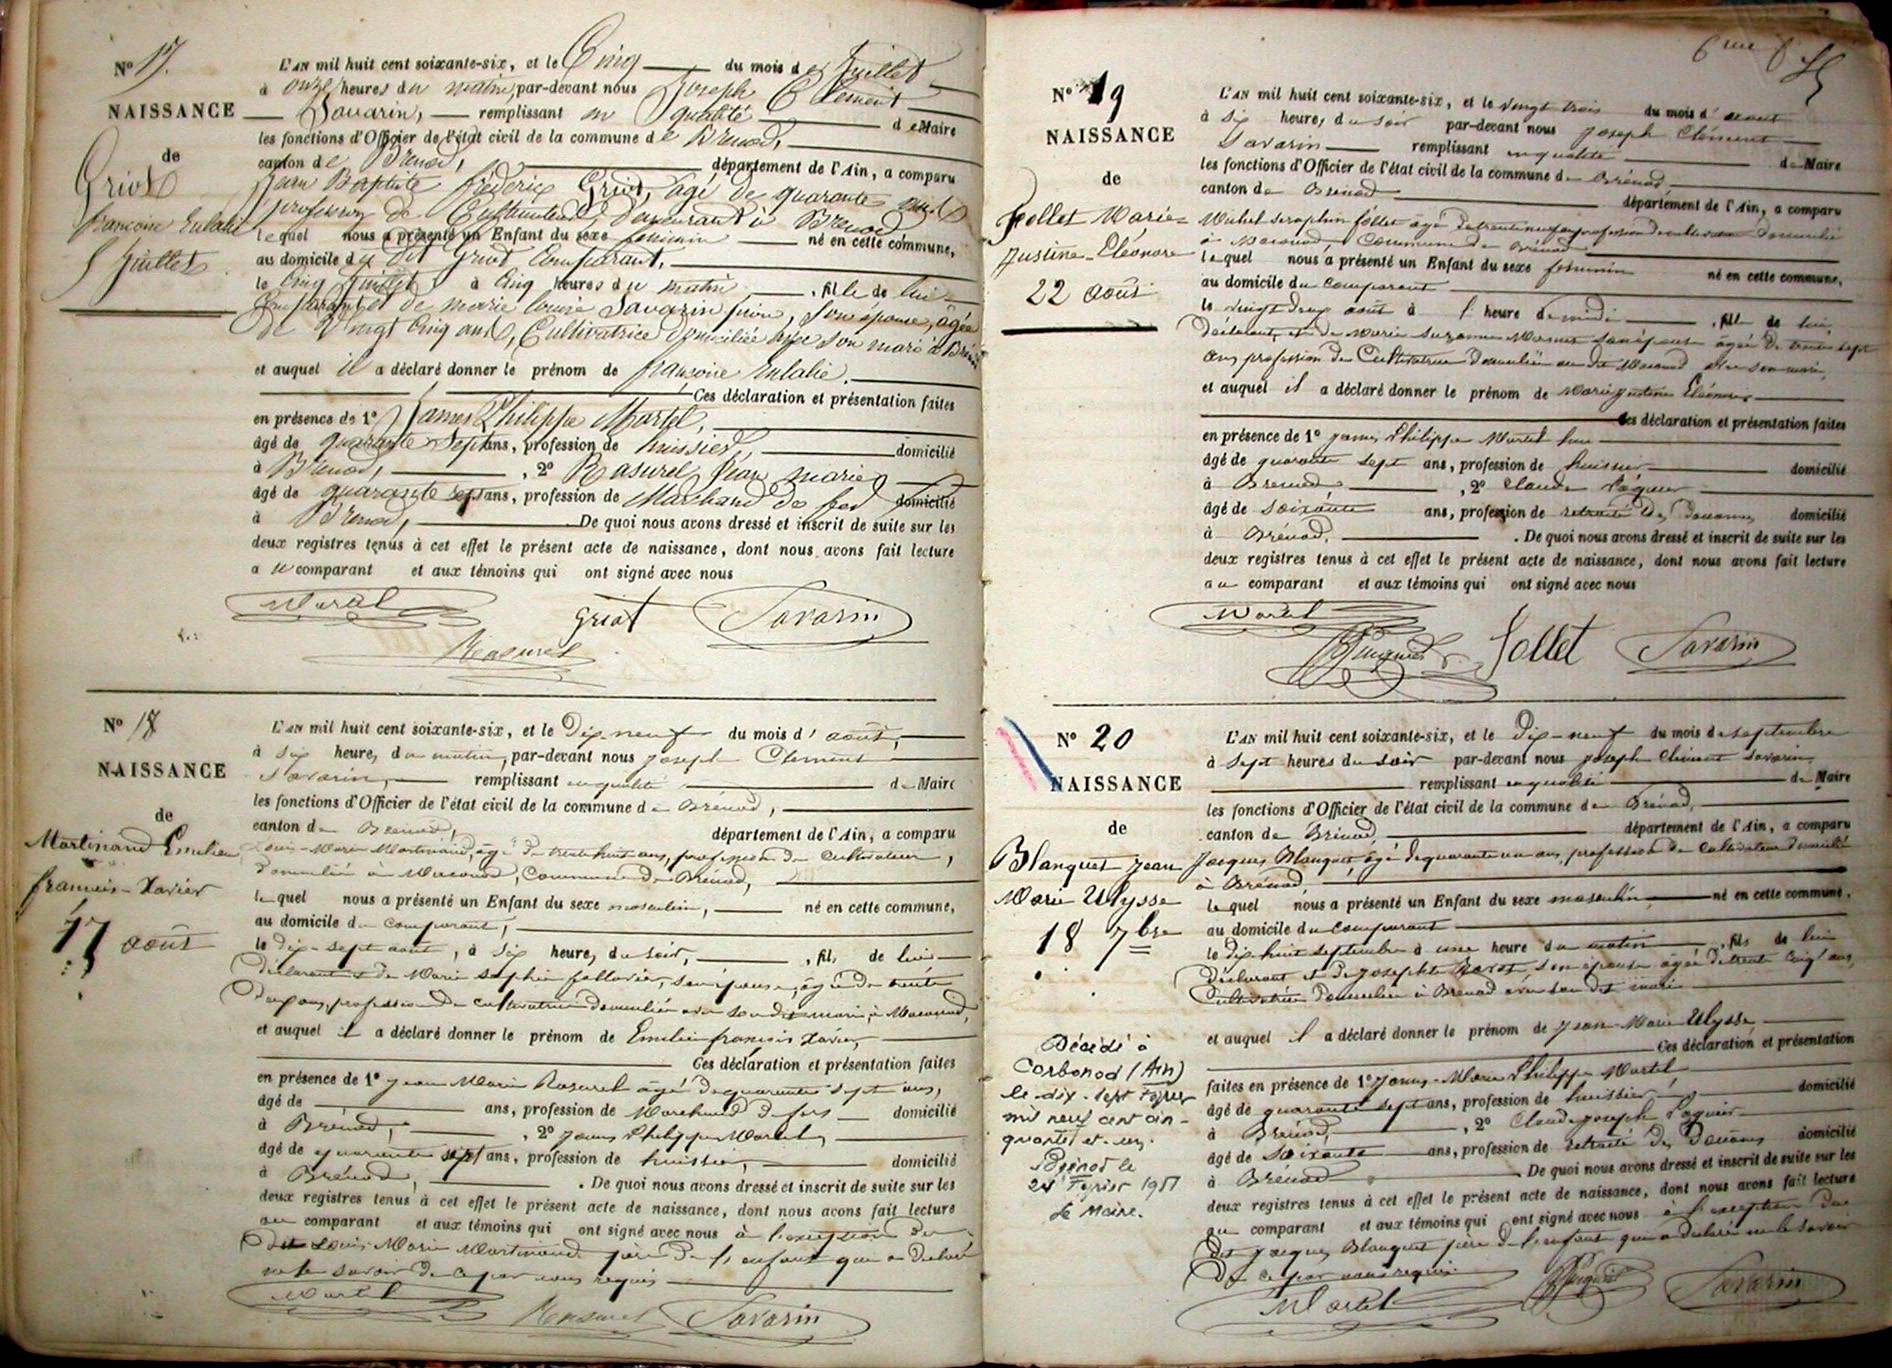 No 17.
NAISSANCE
de
Griot
françoise Eulalie
5 Juillet
L'AN mil huit cent soixante-six, et le Cinq du mois de Juillet
à onze heures du matin, par-devant nous Joseph Clément
Savarin, remplissant en qualité de Maire
les fonctions d'Officier de l'état civil de la commune de Brenod,
canton de Brenod, département de l'Ain, a comparu
Jean Baptiste fréderic Griot, âgé de quarante
profession de Cultivateur, demeurant à Brenod
lequel nous a présenté un Enfant du sexe feminin né en cette commune,
au domicile du dit Griot Comparant,
le Cinq Juillet à Cinq heures du matin, fille de lui
Comparant et de marie louise Savarin, son épouse, âgée
de Vingt Cinq ans, Cultivatrice domiciliée avec son mari à
et auquel il a déclaré donner le prénom de françoise Eulalie.
Ces déclaration et présentation faites
en présence de 1o James Philippe Martel,
âgé de quarante sept ans, profession de huissier, domicilié
à Brenod, 2o Rasurel Jean marie
âgé de quarante sept ans, profession de Marchand de fer domicilié
à Brenod, De quoi nous avons dressé et inscrit de suite sur les
deux registres tenus à cet effet le présent acte de naissance, dont nous avons fait lecture
au comparant et aux témoins qui ont signé avec nous
Martel Griot Savarin
Rasurel
No 18
NAISSANCE
de
Martinand Emilien
françois-Xavier
17 août
L'AN mil huit cent soixante-six, et le Dix neuf du mois d'août,
à six heures du matin, par-devant nous Joseph Clément
Savarin, remplissant en qualité de Maire
les fonctions d'Officier de l'état civil de la commune de Brénod,
canton de Brénod, département de l'Ain, a comparu
Louis-Marie Martinand, âgé de trente huit ans, profession de cultivateur,
domicilié à Macconod, Commune de Brénod,
lequel nous a présenté un Enfant du sexe masculin, né en cette commune,
au domicile du comparant,
le dix-sept août, à six heures du soir, fils de lui
déclarant et de Marie Sophie, son épouse, âgée de trente
deux ans, profession de cultivatrice domiciliée avec son dit mari, à Macconod,
et auquel il a déclaré donner le prénom de Emilien françois Xavier,
Ces déclaration et présentation faites
en présence de 1o Jean Marie Rasurel âgé de quarante sept ans,
âgé de ans, profession de Marchand de fers domicilié
à Brénod, 2o James Philippe Martel,
âgé de quarante sept ans, profession de huissier, domicilié
à Brénod, De quoi nous avons dressé et inscrit de suite sur les
deux registres tenus à cet effet le présent acte de naissance, dont nous avons fait lecture
au comparant et aux témoins qui ont signé avec nous à l'exception du
dit Louis Marie Martinand père de l'enfant qui a déclaré
ne le savoir de ce par nous requis
Martel Rasurel Savarin
No 19
NAISSANCE
de
Follet Marie
Justine-Eléonore
22 août
L'AN mil huit cent soixante-six, et le vingt trois du mois d'aout
à six heures du soir par-devant nous Joseph Clément
Savarin remplissant en qualité de Maire
les fonctions d'Officier de l'état civil de la commune de Brénod
canton de Brénod département de l'Ain, a comparu
Michel Seraphin follet âgé de trente neuf ans profession de cultivateur domicilié
à Macconod, Commune de Brénod
lequel nous a présenté un Enfant du sexe feminin né en cette commune,
au domicile du comparant
le vingt deux août à l'heure de midi, fille de lui
déclarant, et de Marie Suzanne son épouse âgée de trente sept
ans profession de Cultivatrice domiciliée au dit Macconod avec son mari,
et auquel il a déclaré donner le prénom de Marie Justine Eléonore
Ces déclaration et présentation faites
en présence de 1o James Philippe Martel
âgé de quarante sept ans, profession de huissier domicilié
à Brenod, 2o Claude
âgé de soixante ans, profession de retraité des douanes domicilié
à Brénod. De quoi nous avons dressé et inscrit de suite sur les
deux registres tenus à cet effet le présent acte de naissance, dont nous avons fait lecture
au comparant et aux témoins qui ont signé avec nous
Martel
follet Savarin
No 20
NAISSANCE
de
Blanquet Jean
Marie Ulysse
18 7bre
L'AN mil huit cent soixante-six, et le dix-neuf du mois de septembre
à sept heures du soir par-devant nous Joseph Clément Savarin
remplissant en qualité de Maire
les fonctions d'Officier de l'état civil de la commune de Brénod,
canton de Brénod département de l'Ain, a comparu
Jacques Blanquet, âgé de quarante un ans, profession de cultivateur domicilié
à Brénod,
lequel nous a présenté un Enfant du sexe masculin né en cette commune,
au domicile du comparant
le dix huit septembre à une heure du matin, fils de lui
déclarant et de Josephte son épouse âgée de trente cinq ans,
Cultivatrice domiciliée à Brenod avec son dit mari
et auquel il a déclaré donner le prénom de Jean Marie Ulysse
Ces déclaration et présentation
faites en présence de 1o James-Marie Philippe Martel
âgé de quarante sept ans, profession de huissier domicilié
à Brénod, 2o Claude Joseph
âgé de soixante ans, profession de retraité des Douanes domicilié
à Brénod De quoi nous avons dressé et inscrit de suite sur les
deux registres tenus à cet effet le présent acte de naissance, dont nous avons fait lecture
au comparant et aux témoins qui ont signé avec nous à l'exception du
dit Jacques Blanquet père de l'enfant qui a déclaré ne le savoir
de ce par nous requis.
Martel Savarin
Décédé à
Corbonod (Ain)
le dix-sept Février
mil neuf cent cin-
quante et un.
Brénod le
24 Février 1951
Le Maire.